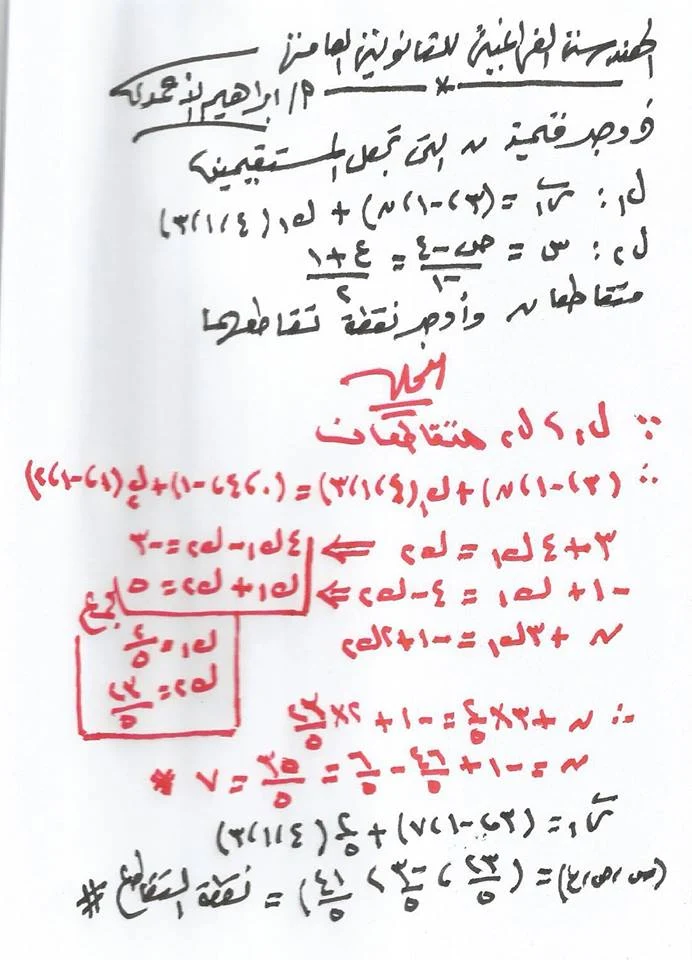 الهندسة الفراغية للثانوية العامة
م/ ابراهيم الأحمدى
أوجد قيمة ن التى تجعل المستقيمين
ل١ : ر١ = (٣ ، -١ ، ن) + ك١ (٤ ، ١ ، ٣)
ل٢ : س = (ص - ٤)/-١ = (ع + ١)/٢
متقاطعان وأوجد نقطة تقاطعهما
الحل
∵ ل١ ، ل٢ متقاطعان
∴ (٣ ، -١ ، ن) + ك١ (٤ ، ١ ، ٣) = (٠ ، ٤ ، -١) + ك٢ (١ ، -١ ، ٢)
٣ + ٤ك١ = ك٢ ⇐ ٤ك١ - ك٢ = -٣
-١ + ك١ = ٤ - ك٢ ⇐ ك١ + ك٢ = ٥ بجمع
ن + ٣ك١ = -١ + ٢ك٢
ك١ = ٢/٥
ك٢ = ٢٣/٥
∴ ن + ٣ × ٢/٥ = -١ + ٢ × ٢٣/٥
ن = -١ + ٤٦/٥ - ٦/٥ = ٣٥/٥ = ٧ *
ر١ = (٣ ، -١ ، ٧) + ٢/٥ (٤ ، ١ ، ٣)
(س ، ص ، ع) = (٢٣/٥ ، -٣/٥ ، ٤١/٥) = نقطة التقاطع #